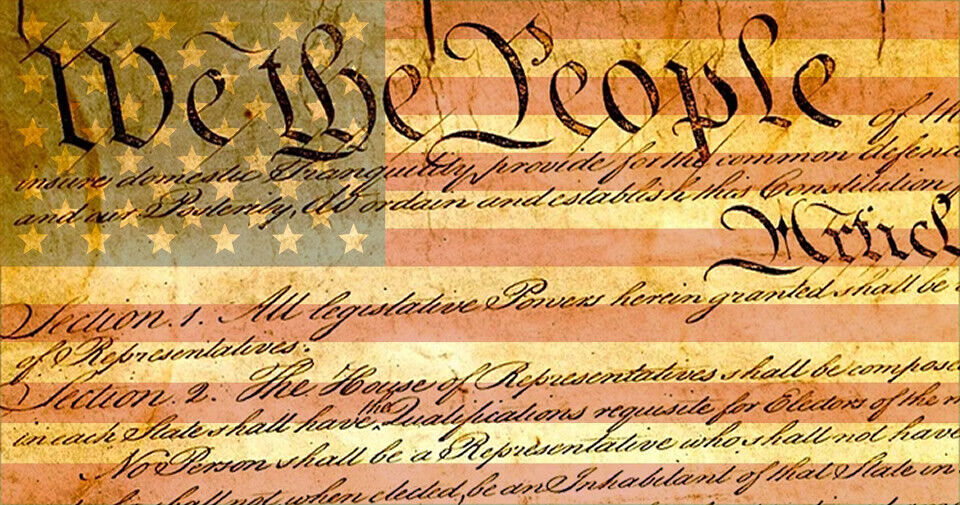 We the People of the
insure domestic Tranquility, provide for the common defence
and our Posterity, do ordain and establish this Constitution
Articl
Section. 1. All legislative Powers herein granted shall be
of Representatives.
Section. 2. The House of Representatives shall be compose
in each State shall have the Qualifications requisite for Electors of the
No Person shall be a Representative who shall not have
shall not, when elected, be an Inhabitant of that State in